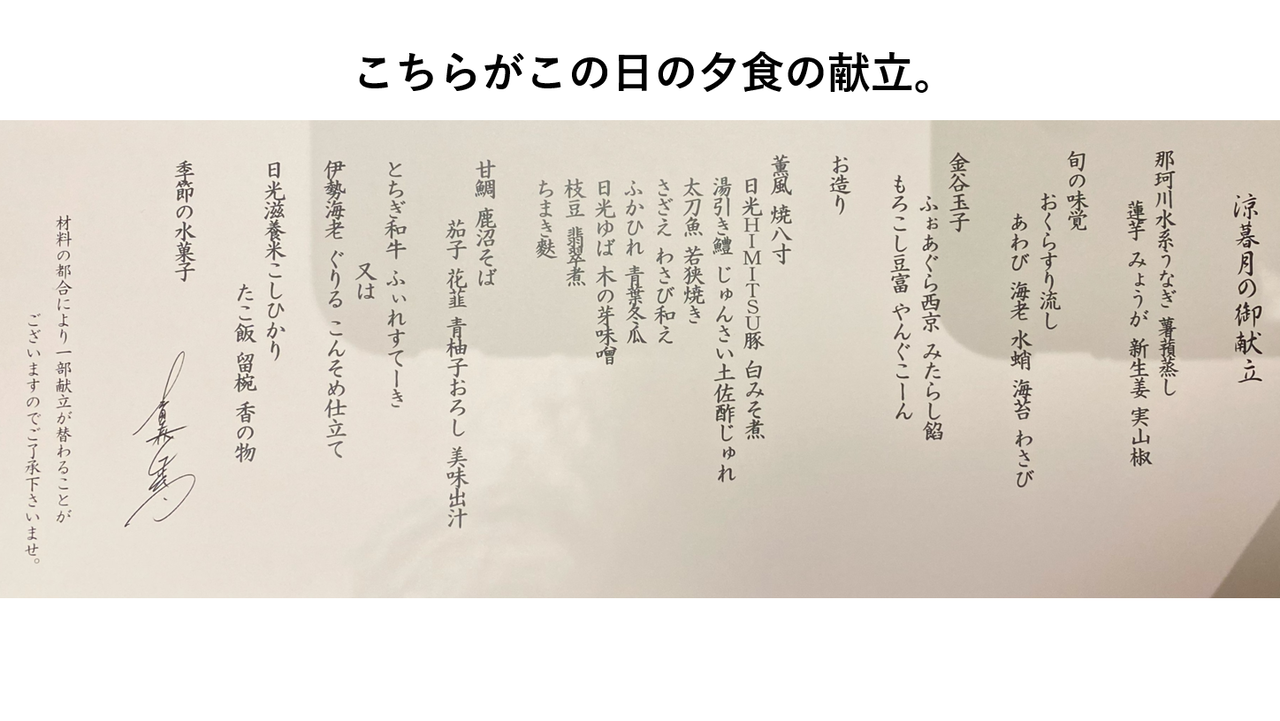 こちらがこの日の夕食の献立。
涼暮月の御献立
那珂川水系うなぎ 薯蕷蒸し
蓮芋 みょうが 新生姜 実山椒
旬の味覚
おくらすり流し
あわび 海老 水蛸 海苔 わさび
金谷玉子
ふぉあぐら西京 みたらし餡
もろこし豆富 やんぐこーん
お造り
薫風 焼八寸
日光HIMITSU豚 白みそ煮
湯引き鱧 じゅんさい土佐酢じゅれ
太刀魚 若狭焼き
さざえ わさび和え
ふかひれ 青葉冬瓜
日光ゆば 木の芽味噌
枝豆 翡翠煮
ちまき麩
甘鯛 鹿沼そば
茄子 花韮 青柚子おろし 美味出汁
とちぎ和牛 ふぃれすてーき
又は
伊勢海老 ぐりる こんそめ仕立て
日光滋養米こしひかり
たこ飯 留椀 香の物
季節の水菓子
材料の都合により一部献立が替わることが
ございますのでご了承下さいませ。